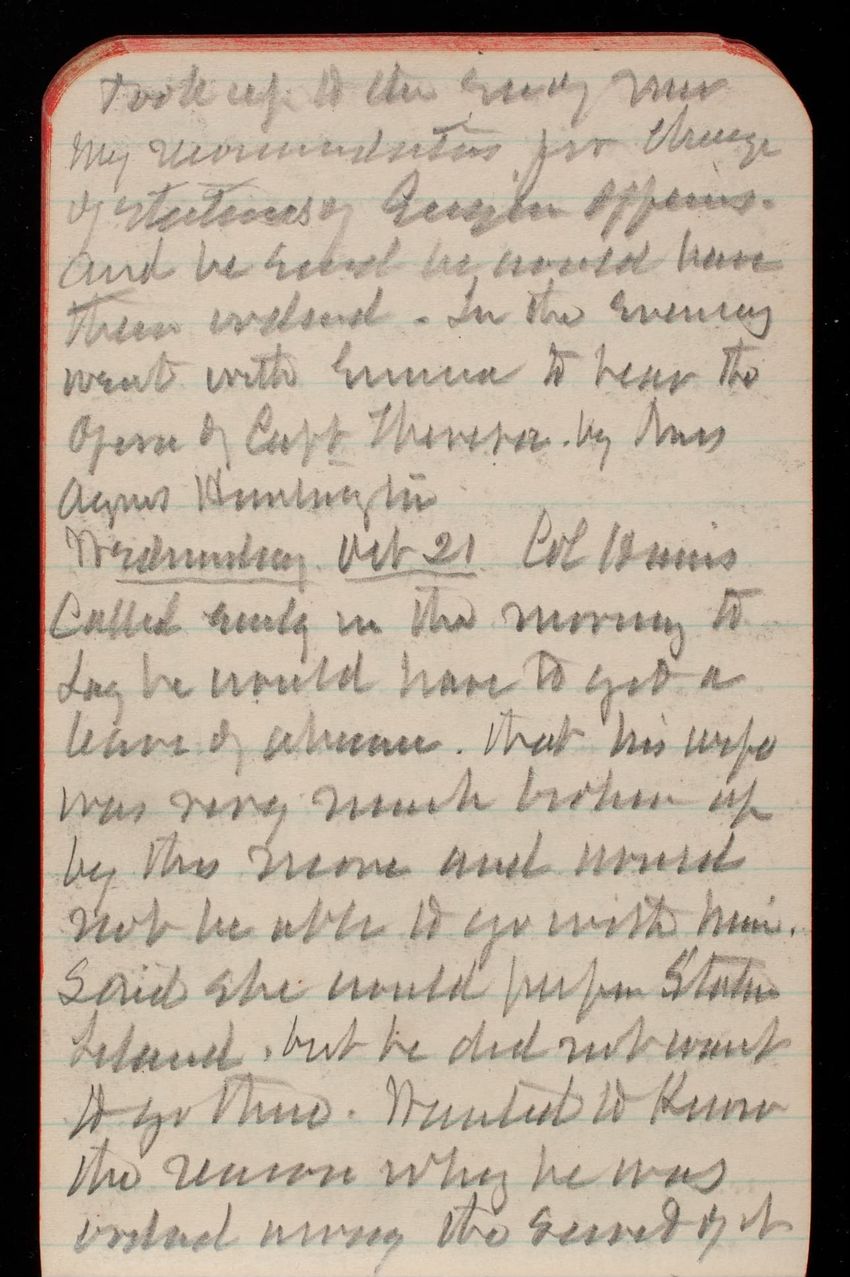 took up to the Secy Genl
My recommendations for Change
of stations of Engin Officers.
And he said he would have
them ordered - In the evening
went with Emma to hear the
Opera of Capt Theresa. by Miss
Agnes Huntington
Wednesday Oct 21 Col
Called early in the morning to
Say he would have to get a
leave of absence. that his wife
was very much broken up
by this move and would
not be able to go with him.
Said she would prefer Staten
Island. but he did not want
to go there. Wanted to Know
the reason why he was
ordered away the Secret of it